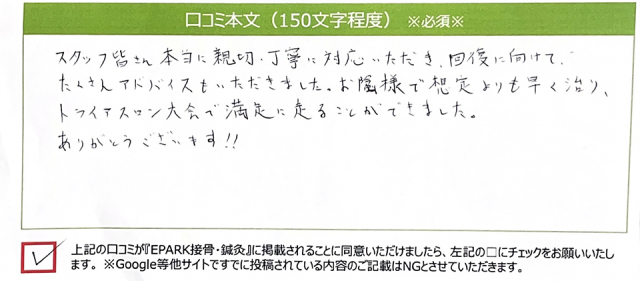 口コミ本文（150文字程度）※必須※
スタッフ皆さん本当に親切・丁寧に対応いただき、回復に向けて、
たくさんアドバイスもいただきました。お陰様で想定よりも早く治り、
トライアスロン大会で満足に走ることができました。
ありがとうございます!!
上記の口コミが『EPARK接骨・鍼灸』に掲載されることに同意いただけましたら、左記の□にチェックをお願いいたし
ます。※Google等他サイトですでに投稿されている内容のご記載はNGとさせていただきます。